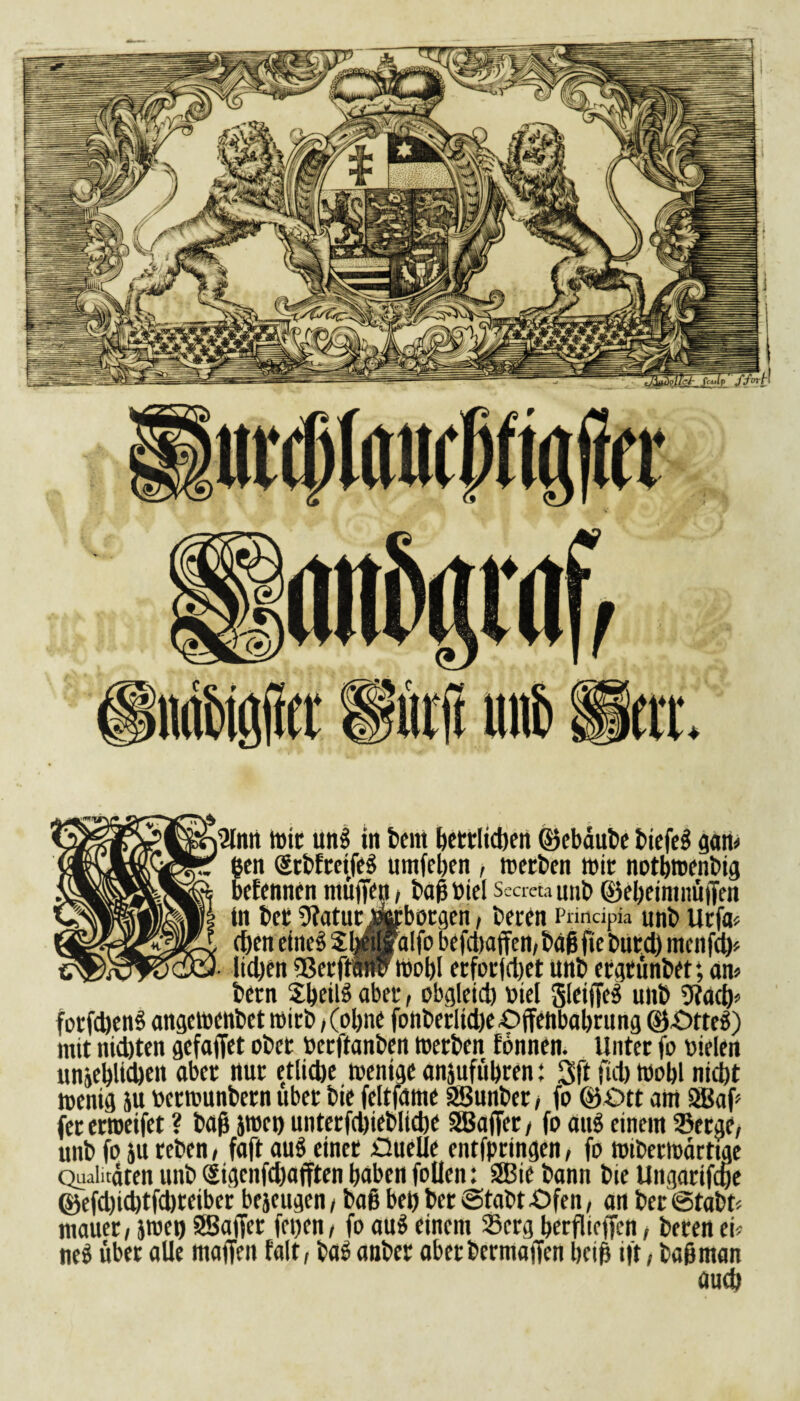 Audollet sculp
Durchlauchtigster
Landgraf,
Gnädigster Fürst und Herr.
Wann wir uns in dem herrlichen Gebäude dieses gan-
tzen Erdkreises umsehen, werden wir nothwendig
bekennen müssen, daß viel Secreta und Geheimnüssen
in der Natur verborgen, deren Principia und Ursa-
chen eines Theils also beschaffen, daß sie durch mensch-
lichen Verstand wohl erforschet und ergründet; an-
dern Theils aber, obgleich viel Fleisses und Nach-
forschens angewendet wird, (ohne sonderliche Offenbahrung GOttes)
mit nichten gefasset oder verstanden werden können. Unter so vielen
unzehlichen aber nur etliche wenige anzuführen: Ist sich wohl nicht
wenig zu verwundern über die seltsame Wunder, so GOtt am Was-
ser erweiset? daß zwey unterschiedliche Wasser, so aus einem Berge,
und so zu reden, fast aus einer Quelle entspringen, so widerwärtige
Qualitäten und Eigenschafften haben sollen: Wie dann die Ungarische
Geschichtschreiber bezeugen, daß bey der Stadt Ofen, an der Stadt-
mauer, zwey Wasser seyen, so aus einem Berg herfliessen, deren ei-
nes über alle massen kalt, das ander aber dermassen heiß ist, daß man
auch